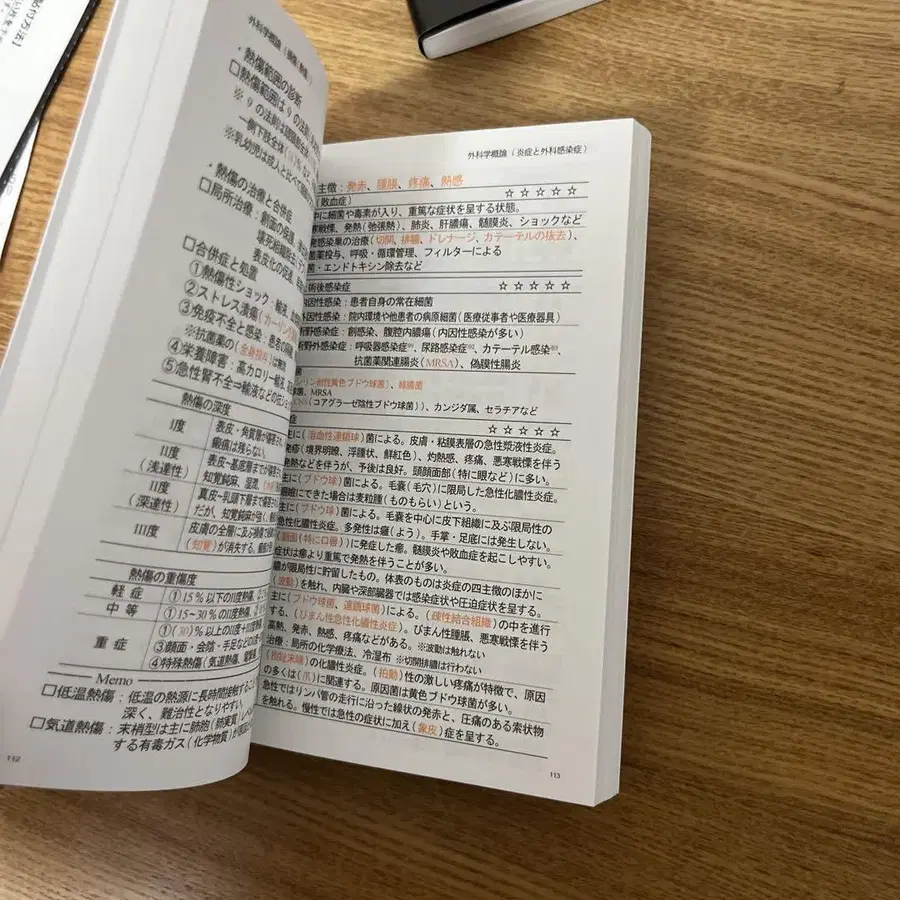 貼付方法】
外科学概論（損傷：熱傷）
・熱傷範囲の診断
□熱傷範囲は9の法則
※9の法則は頭頸部
一側下肢全体
※乳幼児は成人と比べて
・熱傷の治療と合併症
□局所治療：創面の保護、
壊死組織除去
表皮化の促進、
□合併症と処置
①熱傷性ショック：輸液、
②ストレス潰瘍（カーリング
③免疫不全と感染：患者の
※抗菌薬の（全身投与）は無効
④栄養障害：高カロリー輸液、
⑤急性腎不全⇒輸液などの
熱傷の深度
Ⅰ度
表皮・角質層が傷害
瘢痕は残らない。
Ⅱ度
（浅達性）
表皮~基底層まで
知覚鈍麻、湿潤、
Ⅱ度
（深達性）
真皮~乳頭下層まで
だが、知覚鈍麻が強く、
Ⅲ度
皮膚の全層に及ぶ
（知覚）が消失する。
熱傷の重傷度
軽 症
①15％以下のⅡ度熱傷、
中 等
①15~30％のⅡ度熱傷、
重 症
①（30）％以上のⅡ度
③顔面・会陰・手足などの
④特殊熱傷（気道熱傷、
Memo
□低温熱傷：低温の熱源に長時間接触する
深く、難治性となりやすい。
□気道熱傷：末梢型は主に肺胞（肺実質）
する有毒ガス（化学物質）が
112
外科学概論（炎症と外科感染症）
主徴：発赤、腫脹、疼痛、熱感
（敗血症） ☆☆☆☆☆
中に細菌や毒素が入り、重篤な症状を呈する状態。
寒戦慄、発熱（弛張熱）、肺炎、肝膿瘍、髄膜炎、ショックなど
発感染巣の治療（切開、排膿、ドレナージ、カテーテルの抜去）、
菌薬投与、呼吸・循環管理、フィルターによる
菌・エンドトキシン除去など
術後感染症 ☆☆☆☆☆
内因性感染：患者自身の常在細菌
外因性感染：院内環境や他患者の病原細菌（医療従事者や医療器具）
術野感染症：創感染、腹腔内膿瘍（内因性感染が多い）
術野外感染症：呼吸器感染症、尿路感染症、カテーテル感染、
抗菌薬関連腸炎（MRSA）、偽膜性腸炎
シリン耐性黄色ブドウ球菌）、緑膿菌
球菌、MRSA
CNS（コアグラーゼ陰性ブドウ球菌））、カンジダ属、セラチアなど
症 ☆☆☆☆☆
主に（溶血性連鎖球）菌による。皮膚・粘膜表層の急性漿液性炎症。
発疹（境界明瞭、浮腫状、鮮紅色）、灼熱感、疼痛、悪寒戦慄を伴う
発熱などを伴うが、予後は良好。頭顔面部（特に眼など）に多い。
主に（ブドウ球）菌による。毛嚢（毛穴）に限局した急性化膿性炎症。
眼瞼にできた場合は麦粒腫（ものもらい）という。
主に（ブドウ球）菌による。毛嚢を中心に皮下組織に及ぶ限局性の
急性化膿性炎症。多発性は癰（よう）。手掌・足底には発生しない。
（顔面（特に口唇））に発症した癤。髄膜炎や敗血症を起こしやすい。
症状は癤より重篤で発熱を伴うことが多い。
膿が限局性に貯留したもの。体表のものは炎症の四主徴のほかに
（波動）を触れ、内臓や深部臓器では感染症状や圧迫症状を呈する。
主に（ブドウ球菌、連鎖球菌）による。（疎性結合組織）の中を進行
する、（びまん性急性化膿性炎症）。びまん性腫脹、悪寒戦慄を伴う
高熱、発赤、熱感、疼痛などがある。※波動は触れない
治療：局所の化学療法、冷湿布 ※切開排膿は行わない
（指趾末端）の化膿性炎症。（拍動）性の激しい疼痛が特徴で、原因
の多くは（爪）に関連する。原因菌は黄色ブドウ球菌が多い。
急性ではリンパ管の走行に沿った線状の発赤と、圧痛のある索状物
を触れる。慢性では急性の症状に加え（象皮）症を呈する。
113